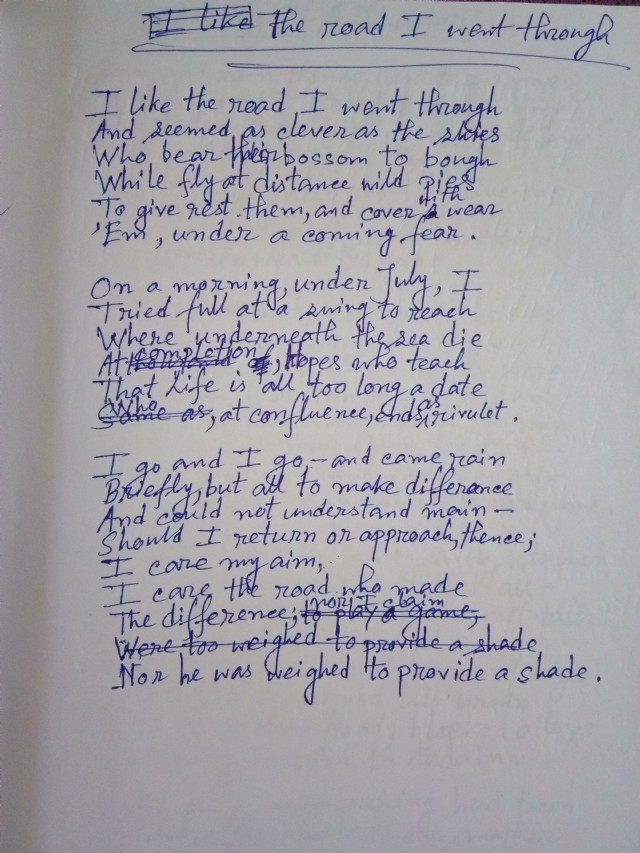 I like the road I went through
I like the road I went through
And seemed as clever as the skies
Who bear their bossom to bough
While fly at distance wild pies
To give rest them, and cover with wear
'Em, under a coming fear.
On a morning, under July, I
Tried full at a swing to reach
Where underneath the sea die
At completion, Hopes who teach
That Life is all too long a date
Who, at confluence, ends as rivulet.
I go and I go,- and came rain
Briefly, but all to make difference
And could not understand main-
Should I return or approach, thence;
I care my aim,
I care the road who made
The difference; nor I claim
to play a game,
Were too weighed to provide a shade
Nor he was weighed to provide a shade.